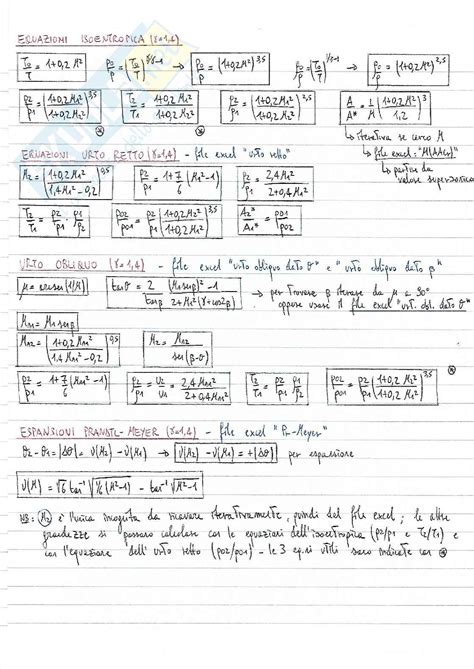 EQUAZIONI ISOENTROPICA (γ=1,4)
T0/T = 1+0,2M² p0/p = (T0/T)^γ/γ-1 → p0/p = (1+0,2M²)^3,5 ρ0/ρ = (T0/T)^1/γ-1 → ρ0/ρ = (1+0,2M²)^2,5
p2/p1 = (1+0,2M1²/1+0,2M2²)^3,5 T2/T1 = 1+0,2M1²/1+0,2M2² ρ2/ρ1 = (1+0,2M1²/1+0,2M2²)^2,5 A/A* = 1/M (1+0,2M²/1,2)^3
↳ iterativa se cerco M
↳ file excel: "M(A/Acr)"
↳ partire da valore supersonico
EQUAZIONI URTO RETTO (γ=1,4) - file excel "urto retto"
M2 = (1+0,2M1²/1,4M1²-0,2)^0,5 p2/p1 = 1+7/6(M1²-1) ρ2/ρ1 = 2,4M1²/2+0,4M1²
T2/T1 = p2/p1 · ρ1/ρ2 p02/p01 = p2/p1 (1+0,2M2²/1+0,2M1²)^3,5 A2*/A1* = p01/p02
URTO OBLIQUO (γ=1,4) - file excel "urto obliquo dato θ" e "urto obliquo dato β"
μ = arcsen(1/M) tanθ = 2/tanβ (M1senβ)²-1/2+M1²(γ+cos2β) → per trovare β iterare da μ a 90°
oppure usare il file excel "urt. obl. dato θ"
Mn1 = M1senβ
Mn2 = (1+0,2Mn1²/1,4Mn1²-0,2)^0,5 M2 = Mn2/sen(β-θ)
p2/p1 = 1+7/6(Mn1²-1) ρ2/ρ1 = 2,4Mn1²/2+0,4Mn1² T2/T1 = p2/p1 · ρ1/ρ2 p02/p01 = p2/p1 (1+0,2M2²/1+0,2M1²)^3,5
ESPANSIONI PRANDTL-MEYER (γ=1,4) - file excel "Pr-Meyer"
θ2-θ1 = |Δθ| = ν(M2) - ν(M1) → ν(M2) - ν(M1) = +|Δθ| per espansione
ν(M) = √6 tan⁻¹ √1/6(M²-1) - tan⁻¹ √M²-1
NB: M2 è l'unica incognita da ricavare iterativamente, quindi dal file excel; le altre
grandezze si possono calcolare con le equazioni dell'isoentropica (p2/p1 e T2/T1) e
con l'equazione dell'urto retto (p02/p01) - le 3 eq.ni utili sono indicate con ⊛